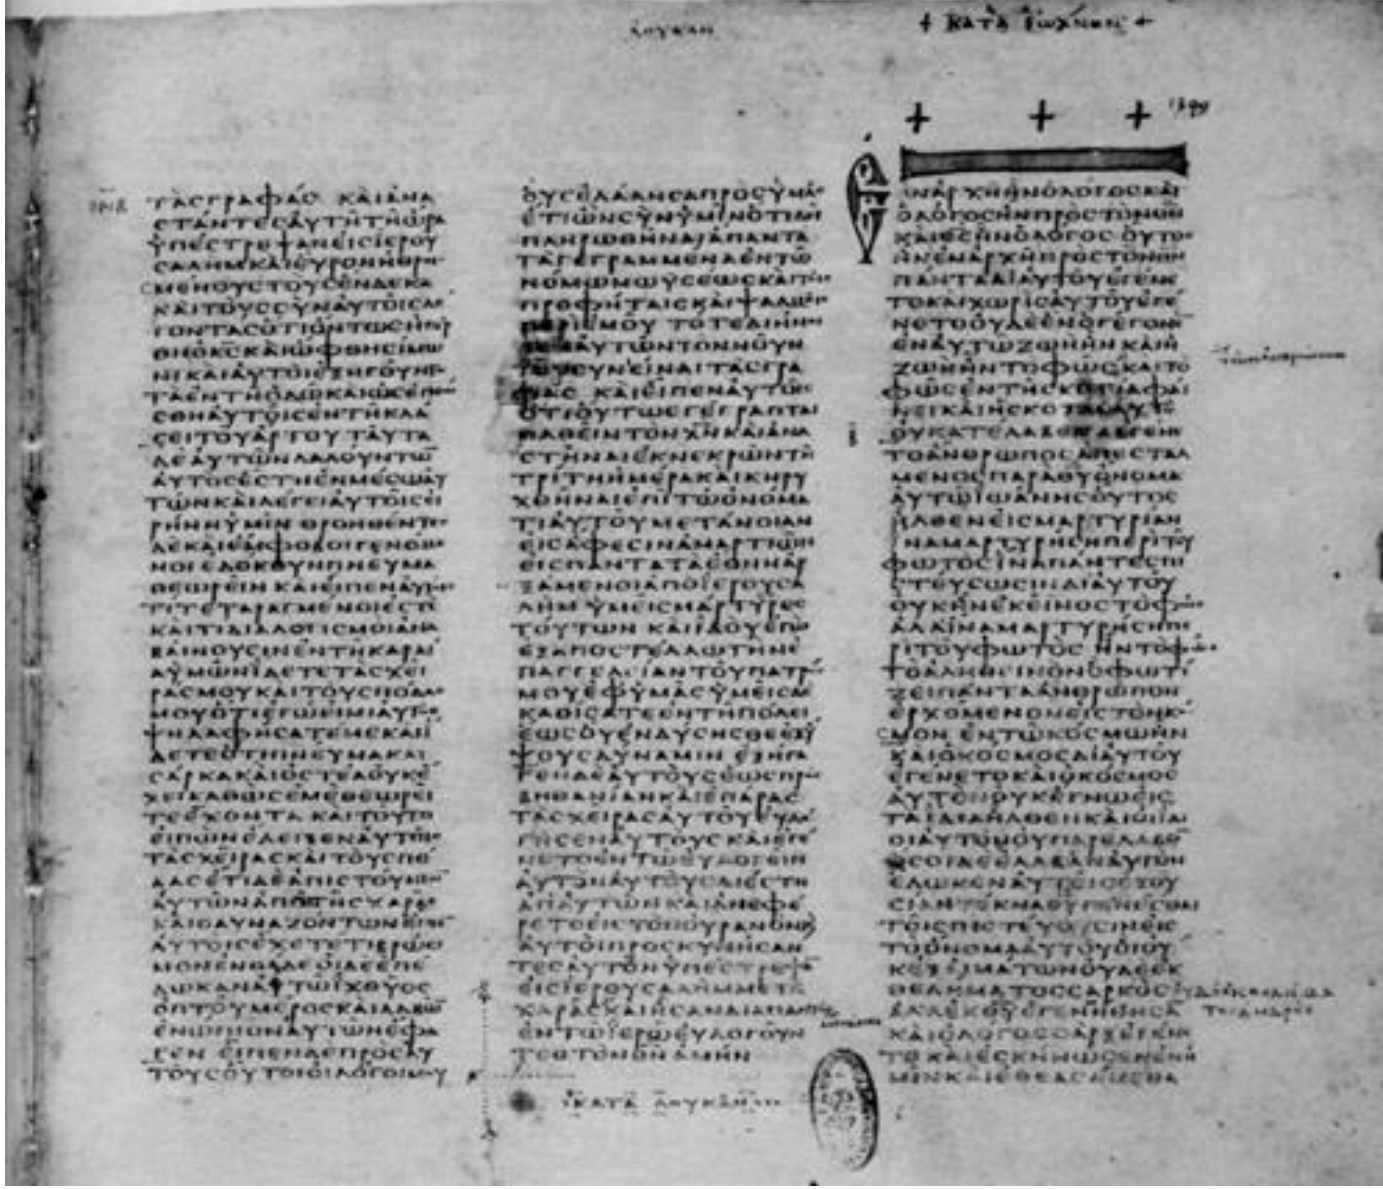 ΛΟΥΚΑΝ
+ ΚΑΤΑ ΙΩΑΝΝΗΝ +
ΤΑϹΓΡΑΦΑϹ ΚΑΙΑΝΑ
ϹΤΑΝΤΕϹΑΥΤΗΤΗΩΡΑ
ΥΠΕϹΤΡΕΨΑΝΕΙϹΙΕΡΟΥ
ϹΑΛΗΜΚΑΙΕΥΡΟΝΗΘΡΟΙ
ϹΜΕΝΟΥϹΤΟΥϹΕΝΔΕΚΑ
ΚΑΙΤΟΥϹϹΥΝΑΥΤΟΙϹΛΕ
ΓΟΝΤΑϹΟΤΙΟΝΤΩϹΗΓΕΡ
ΘΗΟΚϹΚΑΙΩΦΘΗϹΙΜΩ
ΝΙΚΑΙΑΥΤΟΙΕΞΗΓΟΥΝΤΟ
ΤΑΕΝΤΗΟΔΩΚΑΙΩϹΕΓΝΩ
ϹΘΗΑΥΤΟΙϹΕΝΤΗΚΛΑ
ϹΕΙΤΟΥΑΡΤΟΥ ΤΑΥΤΑ
ΔΕΑΥΤΩΝΛΑΛΟΥΝΤΩ
ΑΥΤΟϹΕϹΤΗΕΝΜΕϹΩΑΥ
ΤΩΝΚΑΙΛΕΓΕΙΑΥΤΟΙϹΕΙ
ΡΗΝΗΥΜΙΝ ΘΡΟΗΘΕΝΤΕϹ
ΔΕΚΑΙΕΜΦΟΒΟΙΓΕΝΟΜΕ
ΝΟΙΕΔΟΚΟΥΝΠΝΕΥΜΑ
ΘΕΩΡΕΙΝ ΚΑΙΕΙΠΕΝΑΥΤΟΙϹ
ΤΙΤΕΤΑΡΑΓΜΕΝΟΙΕϹΤΕ
ΚΑΙΤΙΔΙΑΛΟΓΙϹΜΟΙΑΝΑ
ΒΑΙΝΟΥϹΙΝΕΝΤΗΚΑΡΔΙ
ΑΥΜΩΝΙΔΕΤΕΤΑϹΧΕΙ
ΡΑϹΜΟΥΚΑΙΤΟΥϹΠΟΔΑϹ
ΜΟΥΟΤΙΕΓΩΕΙΜΙΑΥΤΟϹ
ΨΗΛΑΦΗϹΑΤΕΜΕΚΑΙΙ
ΔΕΤΕΟΤΙΠΝΕΥΜΑΚΑΙ
ϹΑΡΚΑΚΑΙΟϹΤΕΑΟΥΚΕ
ΧΕΙΚΑΘΩϹΕΜΕΘΕΩΡΕΙ
ΤΕΕΧΟΝΤΑ ΚΑΙΤΟΥΤΟ
ΕΙΠΩΝΕΔΕΙΞΕΝΑΥΤΟΙϹ
ΤΑϹΧΕΙΡΑϹΚΑΙΤΟΥϹΠΟ
ΔΑϹΕΤΙΔΕΑΠΙϹΤΟΥΝΤΩ
ΑΥΤΩΝΑΠΟΤΗϹΧΑΡΑϹ
ΚΑΙΘΑΥΜΑΖΟΝΤΩΝΕΙΠΕ
ΑΥΤΟΙϹΕΧΕΤΕΤΙΒΡΩϹΙ
ΜΟΝΕΝΘΑΔΕΟΙΔΕΕΠΕ
ΔΩΚΑΝΑΥΤΩΙΧΘΥΟϹ
ΟΠΤΟΥΜΕΡΟϹΚΑΙΛΑΒΩ
ΕΝΩΠΙΟΝΑΥΤΩΝΕΦΑ
ΓΕΝ ΕΙΠΕΝΔΕΠΡΟϹΑΥ
ΤΟΥϹΟΥΤΟΙΟΙΛΟΓΟΙΜΟΥ
ΟΥϹΕΛΑΛΗϹΑΠΡΟϹΥΜΑϹ
ΕΤΙΩΝϹΥΝΥΜΙΝΟΤΙΔΕΙ
ΠΛΗΡΩΘΗΝΑΙΑΠΑΝΤΑ
ΤΑΓΕΓΡΑΜΜΕΝΑΕΝΤΩ
ΝΟΜΩΜΩΥϹΕΩϹΚΑΙΤΟΙϹ
ΠΡΟΦΗΤΑΙϹΚΑΙΨΑΛΜΟΙϹ
ΠΕΡΙΕΜΟΥ ΤΟΤΕΔΙΗΝΟΙ
ΞΕΝΑΥΤΩΝΤΟΝΝΟΥΝ
ΤΟΥϹΥΝΕΙΝΑΙΤΑϹΓΡΑ
ΦΑϹ ΚΑΙΕΙΠΕΝΑΥΤΟΙϹ
ΟΤΙΟΥΤΩϹΓΕΓΡΑΠΤΑΙ
ΠΑΘΕΙΝΤΟΝΧΝΚΑΙΑΝΑ
ϹΤΗΝΑΙΕΚΝΕΚΡΩΝΤΗ
ΤΡΙΤΗΗΜΕΡΑΚΑΙΚΗΡΥ
ΧΘΗΝΑΙΕΠΙΤΩΟΝΟΜΑ
ΤΙΑΥΤΟΥΜΕΤΑΝΟΙΑΝ
ΕΙϹΑΦΕϹΙΝΑΜΑΡΤΙΩΝ
ΕΙϹΠΑΝΤΑΤΑΕΘΝΗΑΡ
ΞΑΜΕΝΟΙΑΠΟΙΕΡΟΥϹΑ
ΛΗΜ ΥΜΕΙϹΜΑΡΤΥΡΕϹ
ΤΟΥΤΩΝ ΚΑΙΙΔΟΥΕΓΩ
ΕΞΑΠΟϹΤΕΛΛΩΤΗΝΕ
ΠΑΓΓΕΛΙΑΝΤΟΥΠΑΤΡΟϹ
ΜΟΥΕΦΥΜΑϹΥΜΕΙϹΔΕ
ΚΑΘΙϹΑΤΕΕΝΤΗΠΟΛΕΙ
ΕΩϹΟΥΕΝΔΥϹΗϹΘΕΕΞΥ
ΨΟΥϹΔΥΝΑΜΙΝ ΕΞΗΓΑ
ΓΕΝΔΕΑΥΤΟΥϹΕΩϹΠΡΟϹ
ΒΗΘΑΝΙΑΝΚΑΙΕΠΑΡΑϹ
ΤΑϹΧΕΙΡΑϹΑΥΤΟΥΕΥΛΟ
ΓΗϹΕΝΑΥΤΟΥϹΚΑΙΕΓΕ
ΝΕΤΟΕΝΤΩΕΥΛΟΓΕΙΝ
ΑΥΤΟΝΑΥΤΟΥϹΔΙΕϹΤΗ
ΑΠΑΥΤΩΝΚΑΙΑΝΕΦΕ
ΡΕΤΟΕΙϹΤΟΝΟΥΡΑΝΟΝΚ
ΑΥΤΟΙΠΡΟϹΚΥΝΗϹΑΝ
ΤΕϹΑΥΤΟΝΥΠΕϹΤΡΕΨΑ
ΕΙϹΙΕΡΟΥϹΑΛΗΜΜΕΤΑ
ΧΑΡΑϹΚΑΙΗϹΑΝΔΙΑΠΑΝΤΟϹ
ΕΝΤΩΙΕΡΩΕΥΛΟΓΟΥΝ
ΤΕϹΤΟΝΘΝ ΑΜΗΝ
ΚΑΤΑ ΛΟΥΚΑΝ
+ + +
ΕΝΑΡΧΗΗΝΟΛΟΓΟϹΚΑΙ
ΟΛΟΓΟϹΗΝΠΡΟϹΤΟΝΘΝ
ΚΑΙΘϹΗΝΟΛΟΓΟϹ ΟΥΤΟϹ
ΗΝΕΝΑΡΧΗΠΡΟϹΤΟΝΘΝ
ΠΑΝΤΑΔΙΑΥΤΟΥΕΓΕΝΕ
ΤΟΚΑΙΧΩΡΙϹΑΥΤΟΥΕΓΕ
ΝΕΤΟΟΥΔΕΕΝΟΓΕΓΟΝΕ
ΕΝΑΥΤΩΖΩΗΗΝ ΚΑΙΗ
ΖΩΗΗΝΤΟΦΩϹ ΚΑΙΤΟ
ΦΩϹΕΝΤΗϹΚΟΤΙΑΦΑΙ
ΝΕΙΚΑΙΗϹΚΟΤΙΑΑΥΤΟ
ΟΥΚΑΤΕΛΑΒΕΝ ΕΓΕΝΕ
ΤΟΑΝΘΡΩΠΟϹΑΠΕϹΤΑΛ
ΜΕΝΟϹΠΑΡΑΘΥΟΝΟΜΑ
ΑΥΤΩΙΩΑΝΗϹΟΥΤΟϹ
ΗΛΘΕΝΕΙϹΜΑΡΤΥΡΙΑΝ
ΙΝΑΜΑΡΤΥΡΗϹΗΠΕΡΙΤΟΥ
ΦΩΤΟϹΙΝΑΠΑΝΤΕϹΠΙ
ϹΤΕΥϹΩϹΙΝΔΙΑΥΤΟΥ
ΟΥΚΗΝΕΚΕΙΝΟϹΤΟΦΩϹ
ΑΛΛΙΝΑΜΑΡΤΥΡΗϹΗΠΕ
ΡΙΤΟΥΦΩΤΟϹ ΗΝΤΟΦΩϹ
ΤΟΑΛΗΘΕΙΝΟΝΟΦΩΤΙ
ΖΕΙΠΑΝΤΑΑΝΘΡΩΠΟΝ
ΕΡΧΟΜΕΝΟΝΕΙϹΤΟΝΚΟ
ϹΜΟΝ ΕΝΤΩΚΟϹΜΩΗΝ
ΚΑΙΟΚΟϹΜΟϹΔΙΑΥΤΟΥ
ΕΓΕΝΕΤΟΚΑΙΟΚΟϹΜΟϹ
ΑΥΤΟΝΟΥΚΕΓΝΩΕΙϹ
ΤΑΙΔΙΑΗΛΘΕΝΚΑΙΟΙΙΔΙ
ΟΙΑΥΤΟΝΟΥΠΑΡΕΛΑΒΟ
ΟϹΟΙΔΕΕΛΑΒΑΝΑΥΤΟΝ
ΕΔΩΚΕΝΑΥΤΟΙϹΕΞΟΥ
ϹΙΑΝΤΕΚΝΑΘΥΓΕΝΕϹΘΑΙ
ΤΟΙϹΠΙϹΤΕΥΟΥϹΙΝΕΙϹ
ΤΟΟΝΟΜΑΑΥΤΟΥΟΙΟΥ
ΚΕΞΑΙΜΑΤΩΝΟΥΔΕΕΚ
ΘΕΛΗΜΑΤΟϹϹΑΡΚΟϹ
ΑΛΛΕΚΘΥΕΓΕΝΝΗΘΗϹΑ
ΚΑΙΟΛΟΓΟϹϹΑΡΞΕΓΕΝΕ
ΤΟΚΑΙΕϹΚΗΝΩϹΕΝΕΝΗ
ΜΙΝΚΑΙΕΘΕΑϹΑΜΕΘΑ